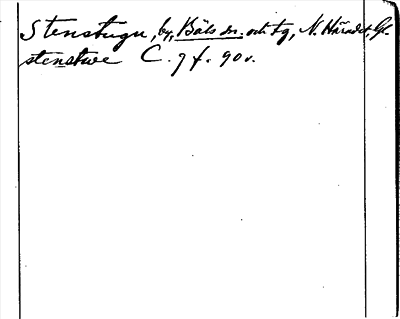 Stenstugu, by, Bäls sn. och tg, N. Häradet, Gl.
stenstwe C. 9 f. 90 v.